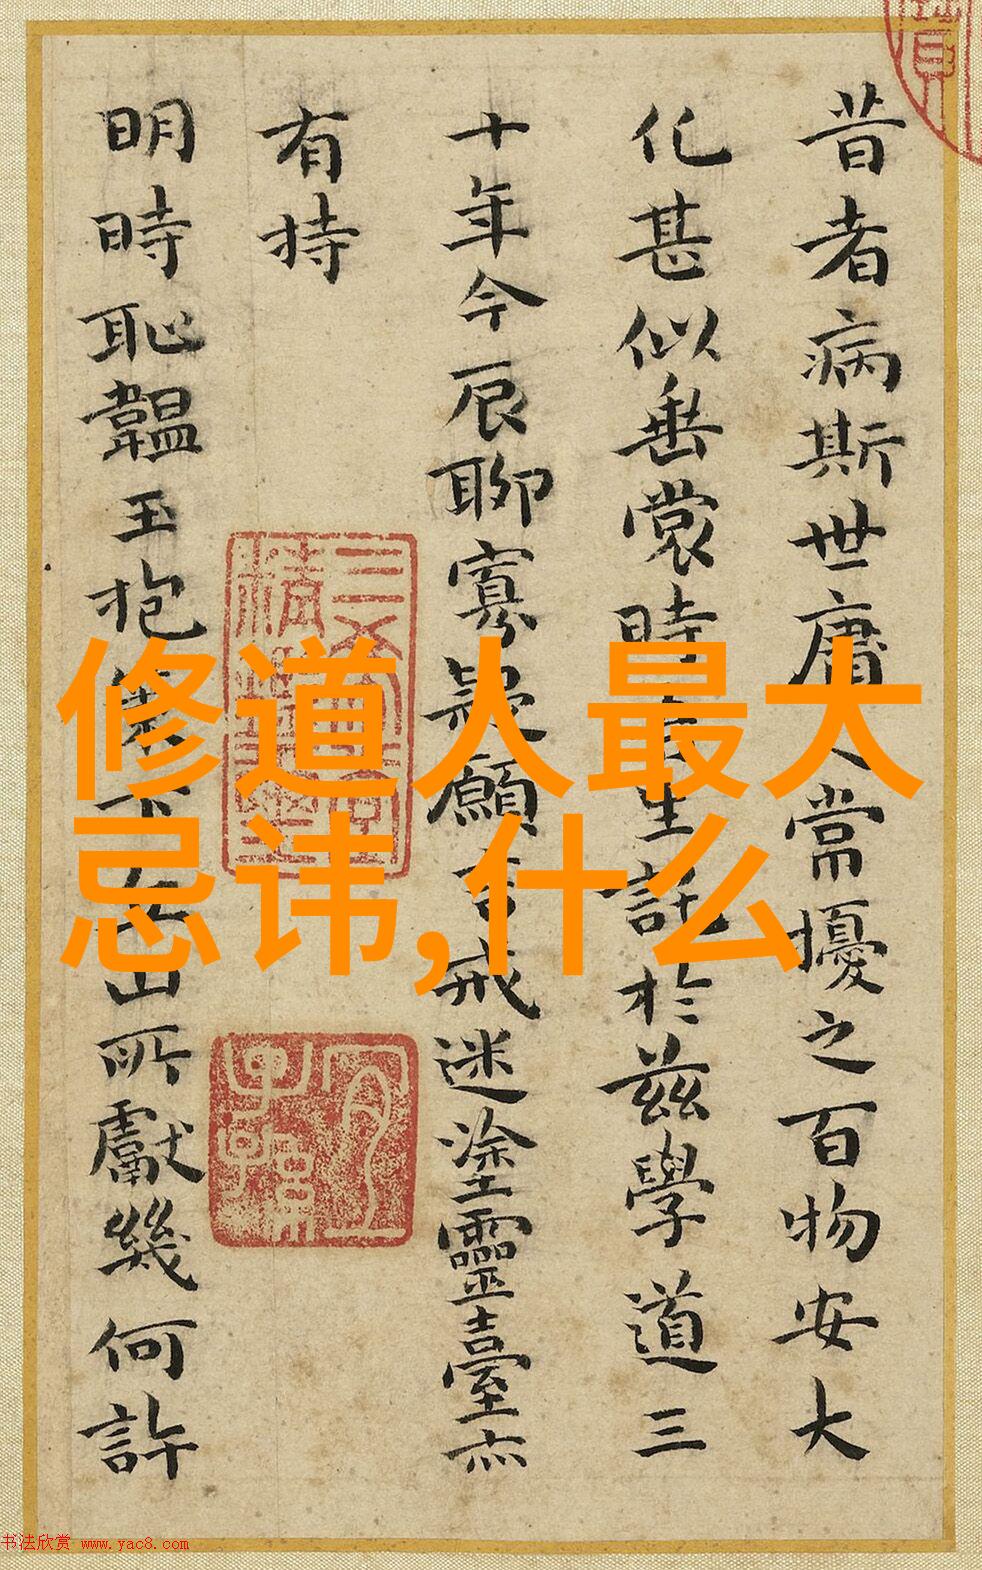 昔者病斯世庸人常擾之百物安大
化甚似垂裳時 生託於茲學道三
十年今辰聊寡疑願言戒迷塗靈臺亦
有持
明時恥韞玉抱 下 山所獻幾何許
修道人最大
忌讳,什么
书法欣赏 www.yac8.com